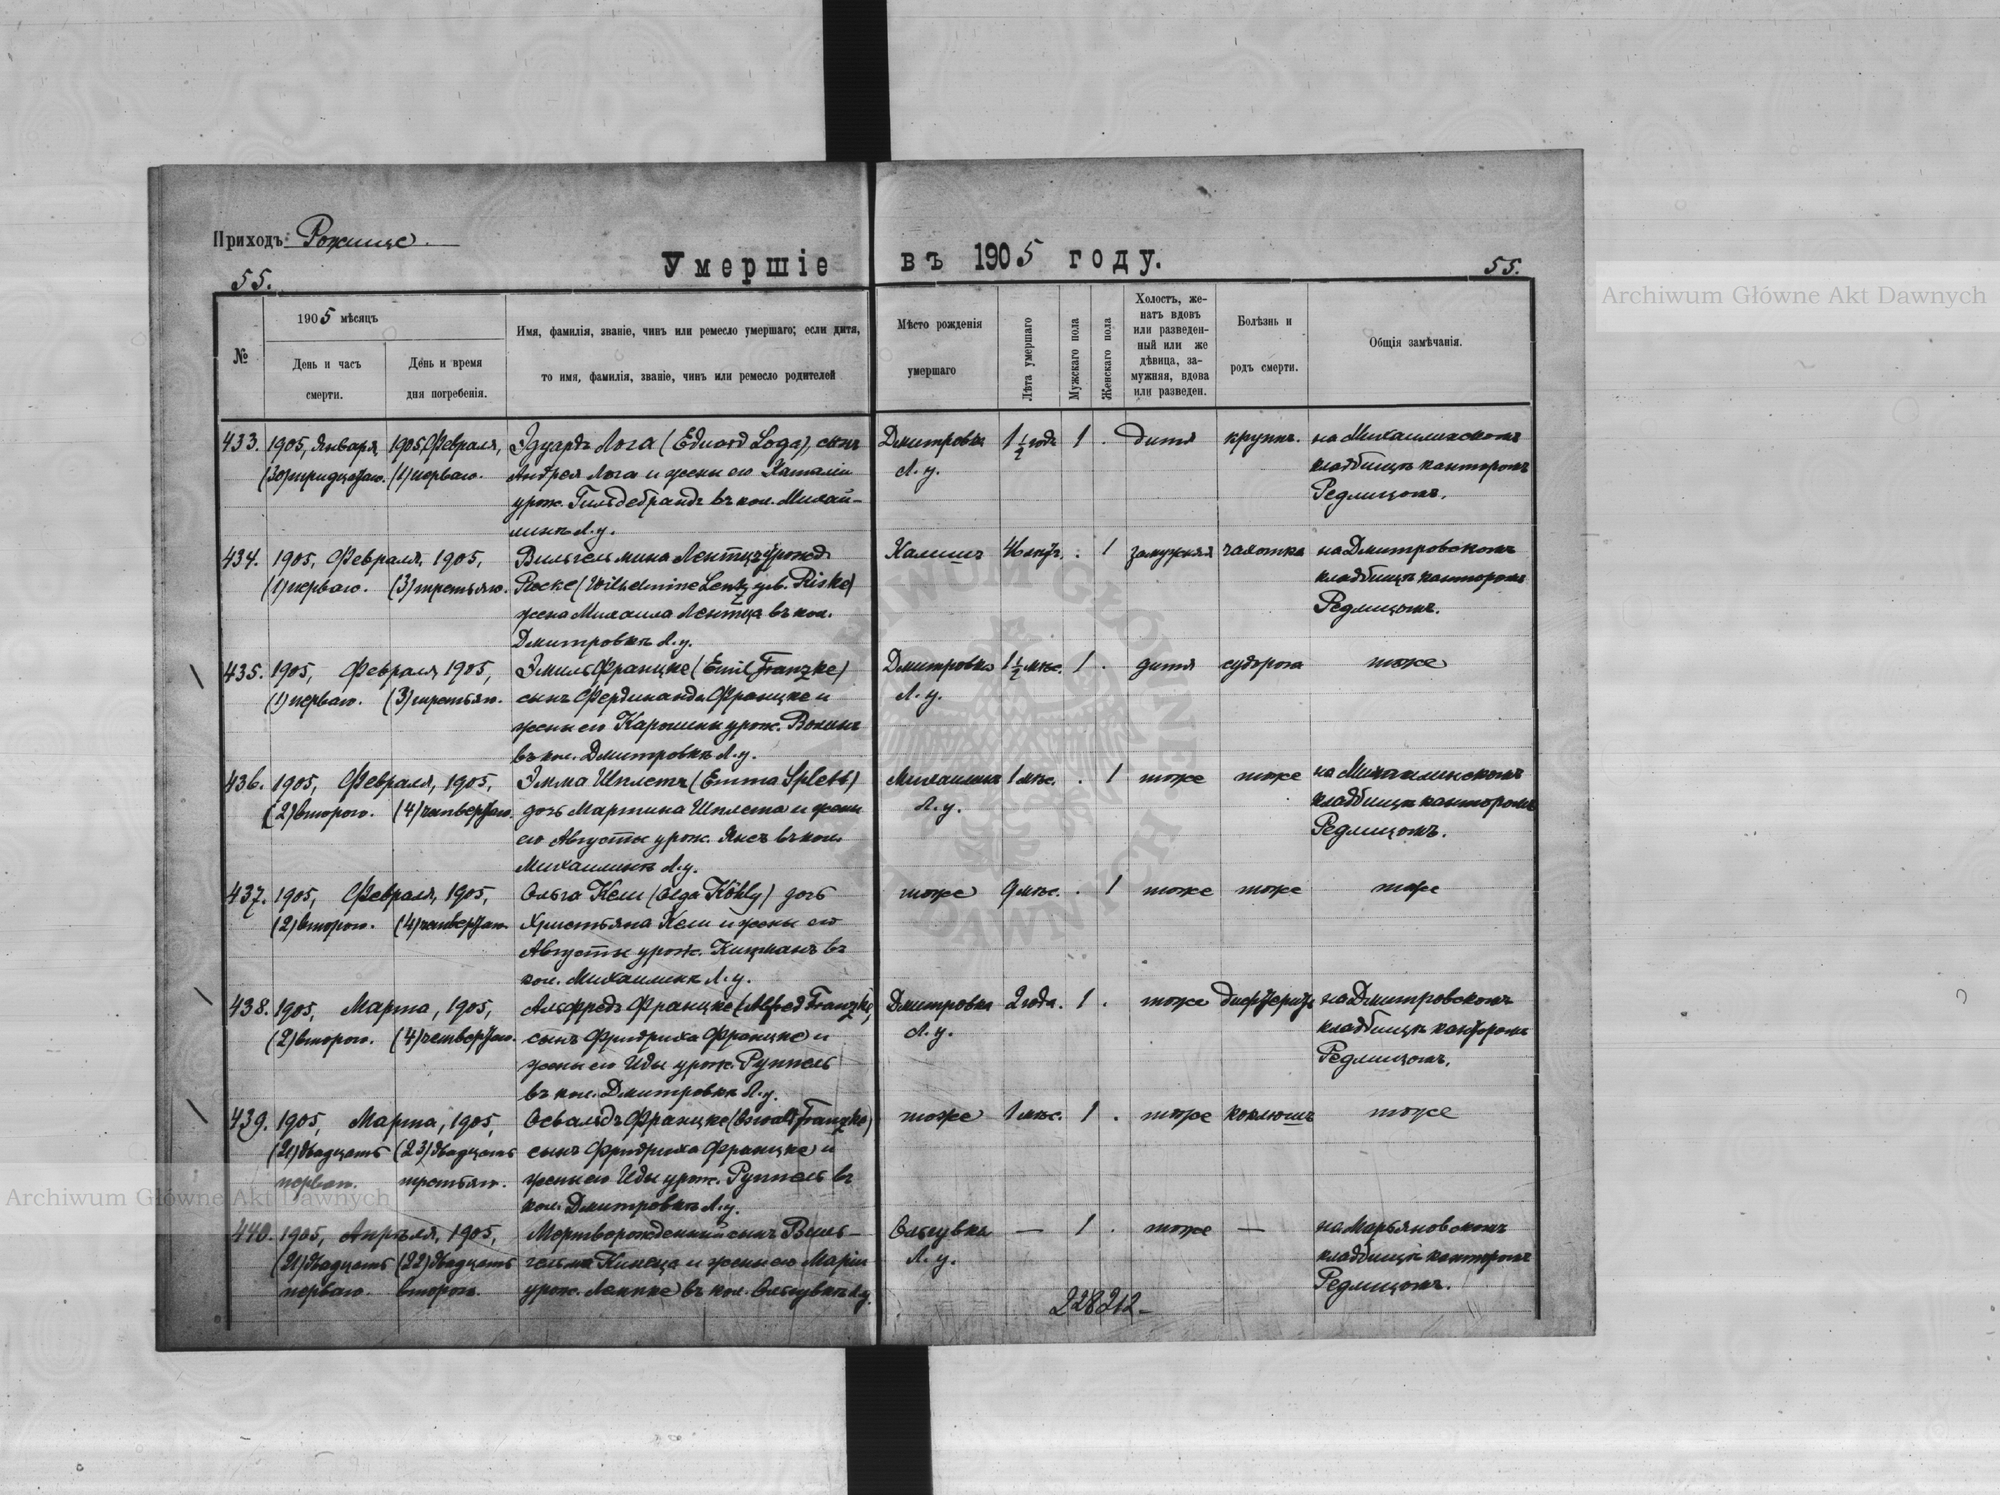 Приходъ: Рожище.
55.
Умершіе въ 1905 году.
55.
№
1905 мѣсяцъ
День и часъ смерти.
День и время дня погребенія.
Имя, фамилія, званіе, чинъ или ремесло умершаго; если дитя,
то имя, фамилія, званіе, чинъ или ремесло родителей
Мѣсто рожденія
умершаго
Лѣта умершаго
Мужскаго пола
Женскаго пола
Холостъ, же-
натъ вдовъ
или разведен-
ный или же
дѣвица, за-
мужняя, вдова
или разведен.
Болѣзнь и
родъ смерти.
Общія замѣчанія.
433. 1905, Января 1905, Февраля, Эдуардъ Лога (Eduard Loga), сынъ Дмитровка 1½ года 1 . дитя крупъ. на Михайлинскомъ
(30) тридцатаго. (1) перваго. Андрея Лога и жены его Наталіи Л. у. кладбищѣ канторомъ
урож. Гильдебрандъ въ кол. Михай- Редлицомъ.
линѣ Л. у.
434. 1905, Февраля, 1905, Вильгельмина Лентцъ урожд. Калишъ 46 . 1 замужняя чахотка на Дмитровскомъ
(1) перваго. (3) третьяго. (Wilhelmine Lentz geb. Riske) кладбищѣ канторомъ
жена Михаила Лентца въ кол. Редлицомъ.
Дмитровкѣ Л. у.
435. 1905, Февраля 1905, Эмиль Францке (Emil Franzke) Дмитровка 1½ мѣс. 1 . дитя судорога тоже
(1) перваго. (3) третьяго. сынъ Фердинанда Францке и Л. у.
жены его Каролины урож.
въ кол. Дмитровкѣ Л. у.
436. 1905, Февраля, 1905, Эмма Шплетъ (Emma Splett) Михайлинъ 1 мѣс. . 1 тоже тоже на Михайлинскомъ
(2) второго. (4) четвертаго. дочь Мартина Шплета и жены Л. у. кладбищѣ канторомъ
его Августы урож. въ кол. Редлицомъ.
Михайлинѣ Л. у.
437. 1905, Февраля, 1905, Ольга Кели (Olga Köhly) дочь тоже 9 мѣс. . 1 тоже тоже тоже
(2) второго. (4) четвертаго. Христьяна Кели и жены его
Августы урож. Кицманъ въ
кол. Михайлинѣ Л. у.
438. 1905, Марта, 1905, Альфредъ Францке (Alfred Franzke) Дмитровка 2 года. 1 . тоже дифтеритъ на Дмитровскомъ
(2) второго. (4) четвертаго. сынъ Фридриха Францке и Л. у. кладбищѣ канторомъ
жены его Иды урож. Руппель Редлицомъ.
въ кол. Дмитровкѣ Л. у.
439. 1905, Марта, 1905, Освальдъ Францке (Oswald Franzke) тоже 1 мѣс. 1 . тоже коклюшъ тоже
(21) двадцать (23) двадцать сынъ Фридриха Францке и
перваго. третьяго. жены его Иды урож. Руппель въ
кол. Дмитровкѣ Л. у.
440. 1905, Апрѣля, 1905, Мертворожденный сынъ Виль- Ольгувка — 1 . тоже — на Марьяновскомъ
(21) двадцать (22) двадцать гельма и жены его Маріи Л. у. кладбищѣ канторомъ
перваго. второго. урож. въ кол. Ольгувкѣ Л. у. Редлицомъ.
228 212.
Archiwum Główne Akt Dawnych
Archiwum Główne Akt Dawnych